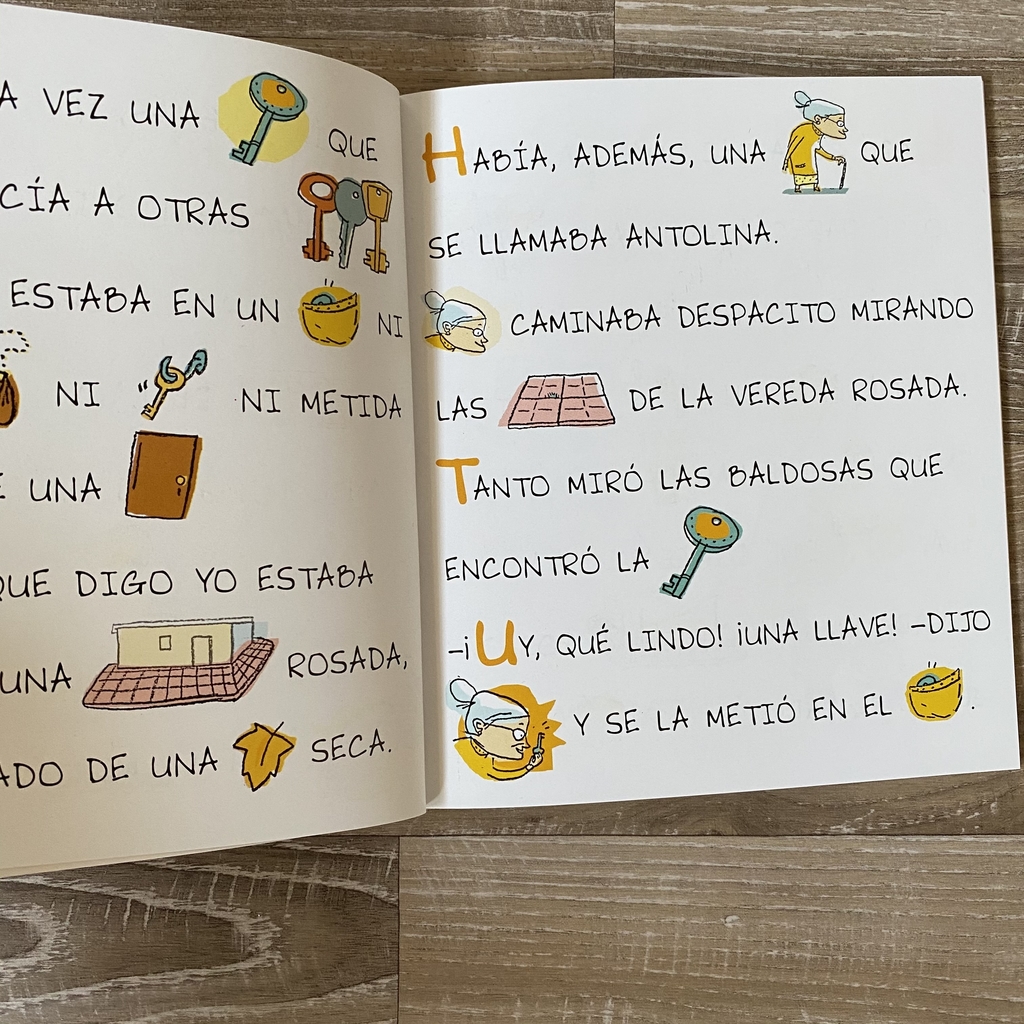 VEZ UNA QUE
A OTRAS
ESTABA EN UN NI
NI NI METIDA
UNA
QUE DIGO YO ESTABA
UNA ROSADA,
DE UNA SECA.
HABÍA, ADEMÁS, UNA QUE
SE LLAMABA ANTOLINA.
CAMINABA DESPACITO MIRANDO
LAS DE LA VEREDA ROSADA.
TANTO MIRÓ LAS BALDOSAS QUE
ENCONTRÓ LA
–¡UY, QUÉ LINDO! ¡UNA LLAVE! –DIJO
Y SE LA METIÓ EN EL .